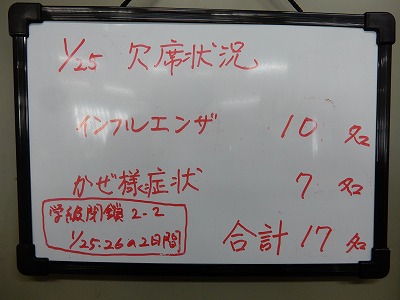 1/25 欠席状況
インフルエンザ 10名
かぜ様症状 7名
学級閉鎖 2-2
1/25.26の2日間
合計17名